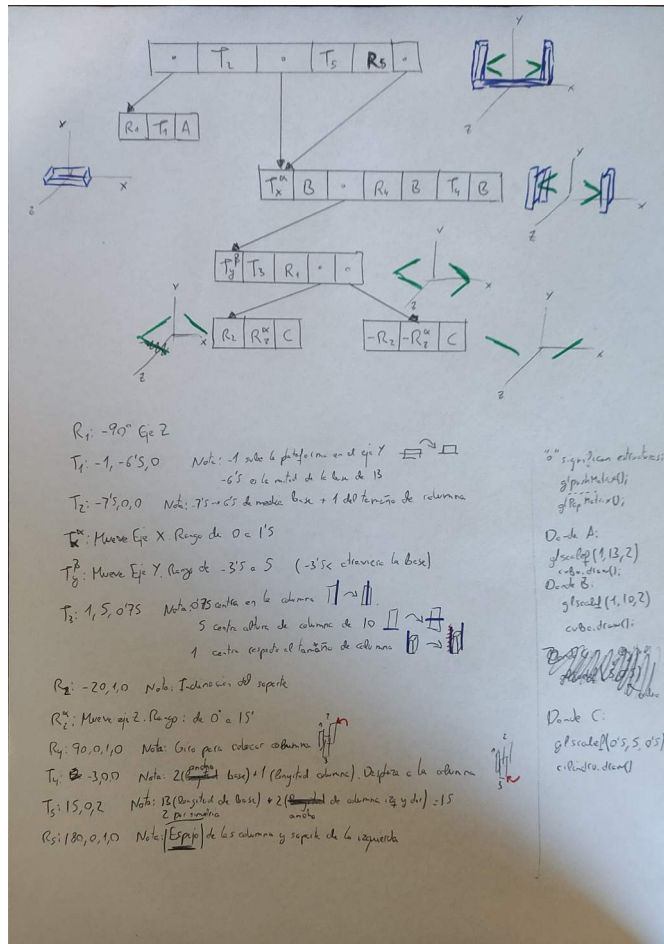 • T₂ • T₅ R₅ •
R₁ T₁ A
Tₓ^α B • R₄ B T₄ B
T_y^β T₃ R₁ • •
R₂ R_z^α C
-R₂ -R_z^α C
Y
X
Z
R₁: -90° Eje Z
T₁: -1, -6'5, 0 Nota: -1 sube la plataforma en el eje Y
-6'5 es la mitad de la base de 13
T₂: -7'5, 0, 0 Nota: -7'5 → 6'5 de media base + 1 del tamaño de columna
Tₓ^α: Mueve Eje X. Rango de 0 a 1'5
T_y^β: Mueve Eje Y. Rango de -3'5 a 5 (-3'5< atraviesa la base)
T₃: 1, 5, 0'75 Nota: 0'75 centra en la columna
5 centra altura de columna de 10
1 centra respecto al tamaño de columna
R₂: -20, 1, 0 Nota: Inclinación del soporte
R_z^α: Mueve eje Z. Rango: de 0° a 15°
R₄: 90, 0, 1, 0 Nota: Giro para colocar columna
T₄: -3, 0, 0 Nota: 2 (ancho base) + 1 (longitud columna). Desplaza a la columna
T₅: 15, 0, 2 Nota: 13 (longitud de base) + 2 (ancho de columna izq y der) = 15
2 por simetría
R₅: 180, 0, 1, 0 Nota: Espejo de las columna y soporte de la izquierda
"o" significan estructuras:
glPushMatrix();
glPopMatrix();
Donde A:
glscalef(1,13,2)
cubo.draw();
Donde B:
glscalef(1,10,2)
cubo.draw();
Donde C:
glscalef(0'5, 5, 0'5)
cilindro.draw()